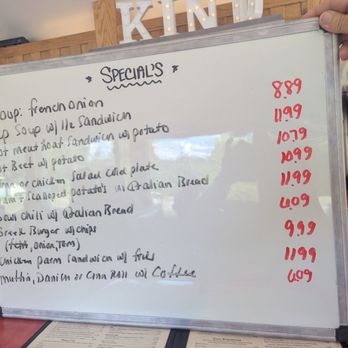 KIND
* SPECIAL'S *
oup: french onion 8.89
p Soup w/ 1/2 Sandwich 11.99
ot meatloaf Sandwich w/ potato 10.79
ot Beef w/ potato 10.99
or chicken salad cold plate 11.99
am & scalloped potato's w/ Italian Bread
owl chili w/ Italian Bread 6.09
reek Burger w/ chips 9.99
(feta, onion, Tom)
chicken parm sandwich w/ fries 11.99
muffin, Danish or Cinn Roll w/ Coffee 6.09